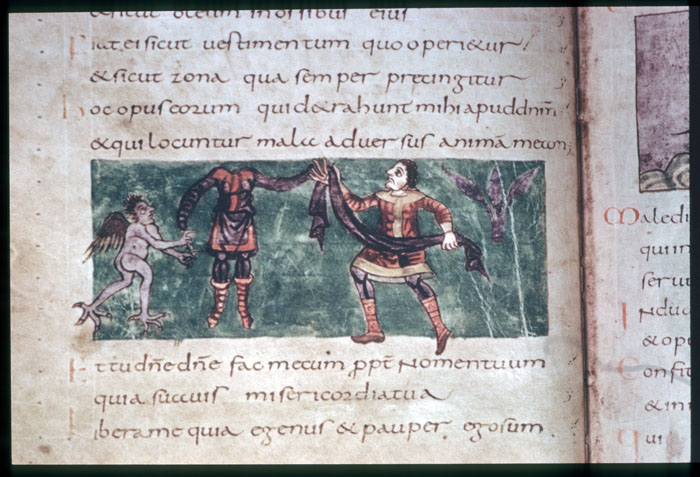 & sicut oleum in ossibus eius
Fiat ei sicut uestimentum quo operi&ur
& sicut zona qua semper precingitur
hoc opus eorum qui d&rahunt mihi apud dnm
& qui locuntur mala aduersus animā meam
Et tu dn̄e dn̄e fac mecum ꝓpt̄ nomen tuum
quia suauis misericordia tua
Libera me quia egenus & pauper ego sum
Maledi
qui in
serui
Indua
& op
Confit
& in
qui